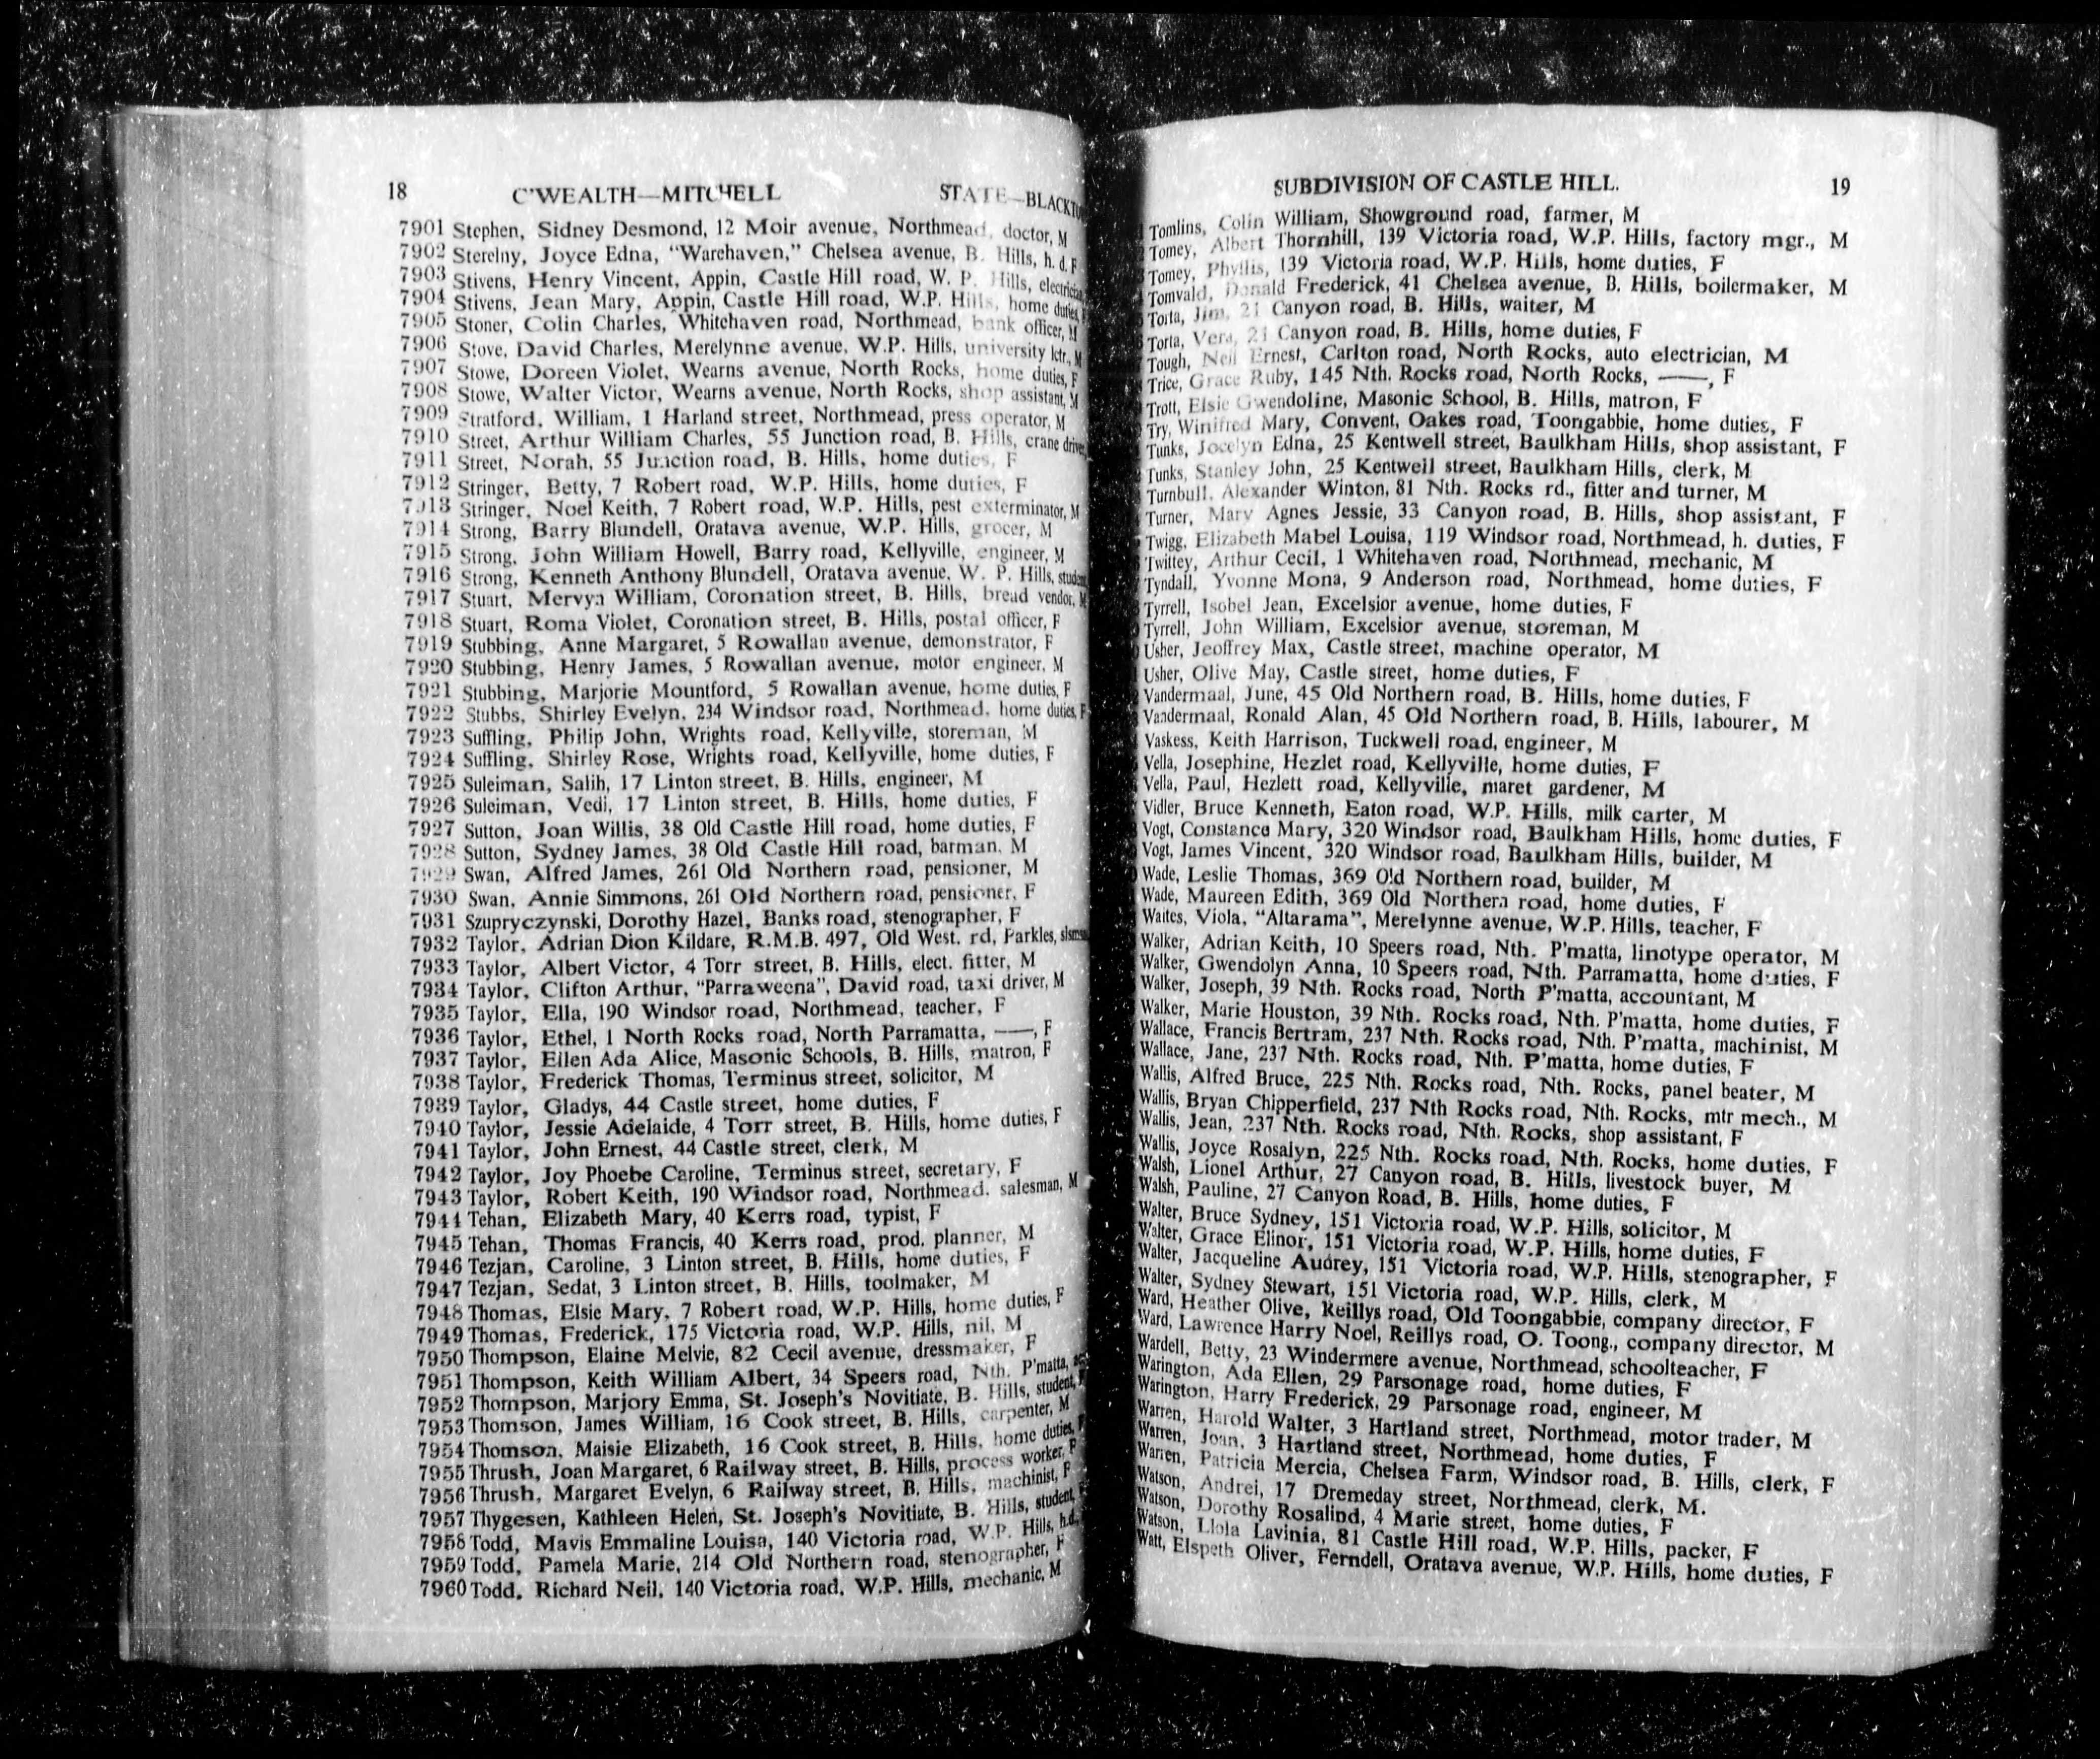 18 C'WEALTH—MITCHELL STATE—BLACKTO
7901 Stephen, Sidney Desmond, 12 Moir avenue, Northmead, doctor, M
7902 Sterelny, Joyce Edna, "Warehaven," Chelsea avenue, B. Hills, h. d. F
7903 Stivens, Henry Vincent, Appin, Castle Hill road, W. P. Hills, electrician
7904 Stivens, Jean Mary, Appin, Castle Hill road, W.P. Hills, home duties,
7905 Stoner, Colin Charles, Whitehaven road, Northmead, bank officer, M
7906 Stove, David Charles, Merelynne avenue, W.P. Hills, university lctr., M
7907 Stowe, Doreen Violet, Wearns avenue, North Rocks, home duties, F
7908 Stowe, Walter Victor, Wearns avenue, North Rocks, shop assistant, M
7909 Stratford, William, 1 Harland street, Northmead, press operator, M
7910 Street, Arthur William Charles, 55 Junction road, B. Hills, crane driver,
7911 Street, Norah, 55 Junction road, B. Hills, home duties, F
7912 Stringer, Betty, 7 Robert road, W.P. Hills, home duties, F
7913 Stringer, Noel Keith, 7 Robert road, W.P. Hills, pest exterminator, M
7914 Strong, Barry Blundell, Oratava avenue, W.P. Hills, grocer, M
7915 Strong, John William Howell, Barry road, Kellyville, engineer, M
7916 Strong, Kenneth Anthony Blundell, Oratava avenue, W. P. Hills, student
7917 Stuart, Mervyn William, Coronation street, B. Hills, bread vendor, M
7918 Stuart, Roma Violet, Coronation street, B. Hills, postal officer, F
7919 Stubbing, Anne Margaret, 5 Rowallan avenue, demonstrator, F
7920 Stubbing, Henry James, 5 Rowallan avenue, motor engineer, M
7921 Stubbing, Marjorie Mountford, 5 Rowallan avenue, home duties, F
7922 Stubbs, Shirley Evelyn, 234 Windsor road, Northmead, home duties, F
7923 Suffling, Philip John, Wrights road, Kellyville, storeman, M
7924 Suffling, Shirley Rose, Wrights road, Kellyville, home duties, F
7925 Suleiman, Salih, 17 Linton street, B. Hills, engineer, M
7926 Suleiman, Vedi, 17 Linton street, B. Hills, home duties, F
7927 Sutton, Joan Willis, 38 Old Castle Hill road, home duties, F
7928 Sutton, Sydney James, 38 Old Castle Hill road, barman, M
7929 Swan, Alfred James, 261 Old Northern road, pensioner, M
7930 Swan, Annie Simmons, 261 Old Northern road, pensioner, F
7931 Szupryczynski, Dorothy Hazel, Banks road, stenographer, F
7932 Taylor, Adrian Dion Kildare, R.M.B. 497, Old West. rd, Parkles, slsmn
7933 Taylor, Albert Victor, 4 Torr street, B. Hills, elect. fitter, M
7934 Taylor, Clifton Arthur, "Parraweena", David road, taxi driver, M
7935 Taylor, Ella, 190 Windsor road, Northmead, teacher, F
7936 Taylor, Ethel, 1 North Rocks road, North Parramatta, ——, F
7937 Taylor, Eilen Ada Alice, Masonic Schools, B. Hills, matron, F
7938 Taylor, Frederick Thomas, Terminus street, solicitor, M
7939 Taylor, Gladys, 44 Castle street, home duties, F
7940 Taylor, Jessie Adelaide, 4 Torr street, B. Hills, home duties, F
7941 Taylor, John Ernest, 44 Castle street, clerk, M
7942 Taylor, Joy Phoebe Caroline, Terminus street, secretary, F
7943 Taylor, Robert Keith, 190 Windsor road, Northmead, salesman, M
7944 Tehan, Elizabeth Mary, 40 Kerrs road, typist, F
7945 Tehan, Thomas Francis, 40 Kerrs road, prod. planner, M
7946 Tezjan, Caroline, 3 Linton street, B. Hills, home duties, F
7947 Tezjan, Sedat, 3 Linton street, B. Hills, toolmaker, M
7948 Thomas, Elsie Mary, 7 Robert road, W.P. Hills, home duties, F
7949 Thomas, Frederick, 175 Victoria road, W.P. Hills, nil, M
7950 Thompson, Elaine Melvie, 82 Cecil avenue, dressmaker, F
7951 Thompson, Keith William Albert, 34 Speers road, Nth. P'matta,
7952 Thompson, Marjory Emma, St. Joseph's Novitiate, B. Hills, student, F
7953 Thomson, James William, 16 Cook street, B. Hills, carpenter, M
7954 Thomson, Maisie Elizabeth, 16 Cook street, B. Hills, home duties, F
7955 Thrush, Joan Margaret, 6 Railway street, B. Hills, process worker, F
7956 Thrush, Margaret Evelyn, 6 Railway street, B. Hills, machinist, F
7957 Thygesen, Kathleen Helen, St. Joseph's Novitiate, B. Hills, student, F
7958 Todd, Mavis Emmaline Louisa, 140 Victoria road, W.P. Hills, h.d.,
7959 Todd, Pamela Marie, 214 Old Northern road, stenographer, F
7960 Todd, Richard Neil, 140 Victoria road, W.P. Hills, mechanic, M
SUBDIVISION OF CASTLE HILL. 19
Tomlins, Colin William, Showground road, farmer, M
Tomey, Albert Thornhill, 139 Victoria road, W.P. Hills, factory mgr., M
Tomey, Phyllis, 139 Victoria road, W.P. Hills, home duties, F
Tomvald, Donald Frederick, 41 Chelsea avenue, B. Hills, boilermaker, M
Torta, Jim, 21 Canyon road, B. Hills, waiter, M
Torta, Vera, 21 Canyon road, B. Hills, home duties, F
Tough, Neil Ernest, Carlton road, North Rocks, auto electrician, M
Trice, Grace Ruby, 145 Nth. Rocks road, North Rocks, ——, F
Trott, Elsie Gwendoline, Masonic School, B. Hills, matron, F
Try, Winifred Mary, Convent, Oakes road, Toongabbie, home duties, F
Tunks, Jocelyn Edna, 25 Kentwell street, Baulkham Hills, shop assistant, F
Tunks, Stanley John, 25 Kentwell street, Baulkham Hills, clerk, M
Turnbull, Alexander Winton, 81 Nth. Rocks rd., fitter and turner, M
Turner, Mary Agnes Jessie, 33 Canyon road, B. Hills, shop assistant, F
Twigg, Elizabeth Mabel Louisa, 119 Windsor road, Northmead, h. duties, F
Twittey, Arthur Cecil, 1 Whitehaven road, Northmead, mechanic, M
Tyndall, Yvonne Mona, 9 Anderson road, Northmead, home duties, F
Tyrrell, Isobel Jean, Excelsior avenue, home duties, F
Tyrrell, John William, Excelsior avenue, storeman, M
Usher, Jeoffrey Max, Castle street, machine operator, M
Usher, Olive May, Castle street, home duties, F
Vandermaal, June, 45 Old Northern road, B. Hills, home duties, F
Vandermaal, Ronald Alan, 45 Old Northern road, B. Hills, labourer, M
Vaskess, Keith Harrison, Tuckwell road, engineer, M
Vella, Josephine, Hezlet road, Kellyville, home duties, F
Vella, Paul, Hezlett road, Kellyville, maret gardener, M
Vidler, Bruce Kenneth, Eaton road, W.P. Hills, milk carter, M
Vogt, Constance Mary, 320 Windsor road, Baulkham Hills, home duties, F
Vogt, James Vincent, 320 Windsor road, Baulkham Hills, builder, M
Wade, Leslie Thomas, 369 Old Northern road, builder, M
Wade, Maureen Edith, 369 Old Northern road, home duties, F
Waites, Viola, "Altarama", Merelynne avenue, W.P. Hills, teacher, F
Walker, Adrian Keith, 10 Speers road, Nth. P'matta, linotype operator, M
Walker, Gwendolyn Anna, 10 Speers road, Nth. Parramatta, home duties, F
Walker, Joseph, 39 Nth. Rocks road, North P'matta, accountant, M
Walker, Marie Houston, 39 Nth. Rocks road, Nth. P'matta, home duties, F
Wallace, Francis Bertram, 237 Nth. Rocks road, Nth. P'matta, machinist, M
Wallace, Jane, 237 Nth. Rocks road, Nth. P'matta, home duties, F
Wallis, Alfred Bruce, 225 Nth. Rocks road, Nth. Rocks, panel beater, M
Wallis, Bryan Chipperfield, 237 Nth Rocks road, Nth. Rocks, mtr mech., M
Wallis, Jean, 237 Nth. Rocks road, Nth. Rocks, shop assistant, F
Wallis, Joyce Rosalyn, 225 Nth. Rocks road, Nth. Rocks, home duties, F
Walsh, Lionel Arthur, 27 Canyon road, B. Hills, livestock buyer, M
Walsh, Pauline, 27 Canyon Road, B. Hills, home duties, F
Walter, Bruce Sydney, 151 Victoria road, W.P. Hills, solicitor, M
Walter, Grace Elinor, 151 Victoria road, W.P. Hills, home duties, F
Walter, Jacqueline Audrey, 151 Victoria road, W.P. Hills, stenographer, F
Walter, Sydney Stewart, 151 Victoria road, W.P. Hills, clerk, M
Ward, Heather Olive, Reillys road, Old Toongabbie, company director, F
Ward, Lawrence Harry Noel, Reillys road, O. Toong., company director, M
Wardell, Betty, 23 Windermere avenue, Northmead, schoolteacher, F
Warington, Ada Ellen, 29 Parsonage road, home duties, F
Warington, Harry Frederick, 29 Parsonage road, engineer, M
Warren, Harold Walter, 3 Hartland street, Northmead, motor trader, M
Warren, Joan, 3 Hartland street, Northmead, home duties, F
Warren, Patricia Mercia, Chelsea Farm, Windsor road, B. Hills, clerk, F
Watson, Andrei, 17 Dremeday street, Northmead, clerk, M.
Watson, Dorothy Rosalind, 4 Marie street, home duties, F
Watson, Llola Lavinia, 81 Castle Hill road, W.P. Hills, packer, F
Watt, Elspeth Oliver, Ferndell, Oratava avenue, W.P. Hills, home duties, F